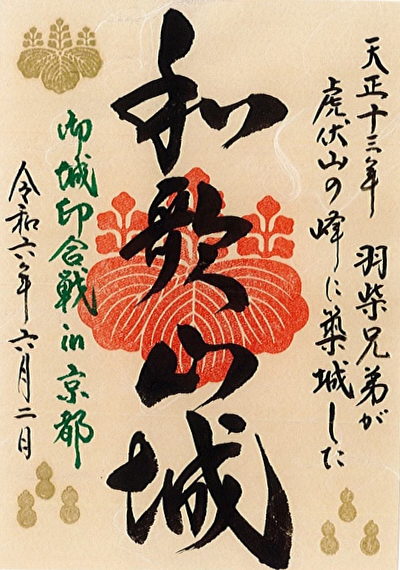 天正十三年 羽柴兄弟が
虎伏山の峰に築城した
和歌山城
御城印合戦in京都
令和六年 六月二日